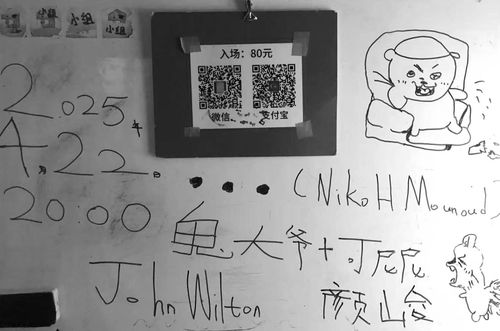 小组
小组
小组
入场：80元
微信
支付宝
2025年
4,22.
20:00
(NikoHMounoud)
鬼大爷+可尼尼
John Wilton
颜峻